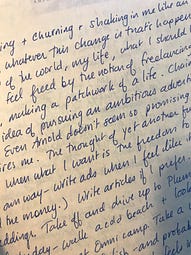 ing + churning + shaking in me like an
whatever this change is that's happen
of the world, my life, what I should
feel freed by the notion of freelancin
making a patchwork of a life. Chain
idea of pursuing an ambitious adver
Even Arnold doesn't seem so promising
ires me. The thought of yet another fu
when what I want is the freedom to
am way - write ads when I feel like
the money.) Write articles if I prefer
ddings. Take off and drive up to Plum
day - walk a cold beach + loo
at Omni camp. Take a
ish and probab